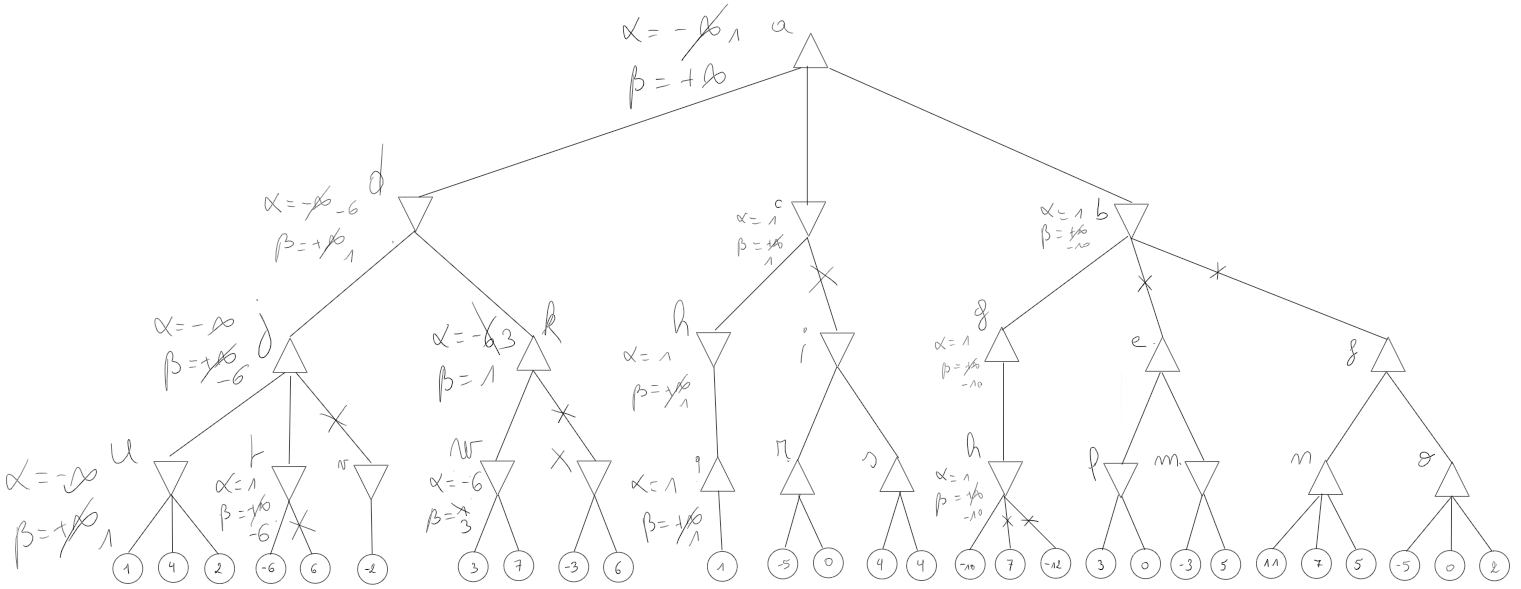 α = -∞ 1 a
β = +∞
d
α = -∞ -6
β = +∞ 1
c
α = 1
β = +∞
1
α = 1 b
β = +∞
-10
j
α = -∞
β = +∞
-6
k
α = -6 3
β = 1
h
α = 1
β = +∞
1
i
g
α = 1
β = +∞
-10
e
f
u
α = -∞
β = +∞ 1
t
α = 1
β = +∞
-6
v
w
α = -6
β = 1
3
x
q
α = 1
β = +∞
1
r
s
h
α = 1
β = +∞
-10
p
m
n
o
1 4 2 -6 6 -2 3 7 -3 6 1 -5 0 4 4 -10 7 -12 3 0 -3 5 11 7 5 -5 0 2